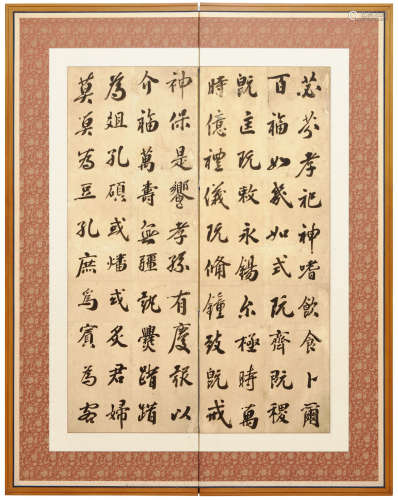 苾芬孝祀神嗜飲食卜爾
百福如幾如式既齊既稷
既匡既敕永錫尒極時萬
時億禮儀既備鐘鼓既戒
神保是饗孝孫有慶報以
介福萬壽無疆執爨踖踖
為俎孔碩或燔或炙君婦
莫莫為豆孔庶為賓為客